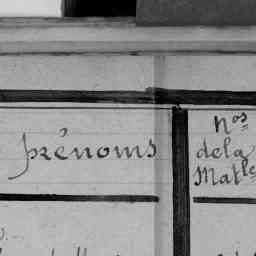 prénoms
nos
dela
Matle